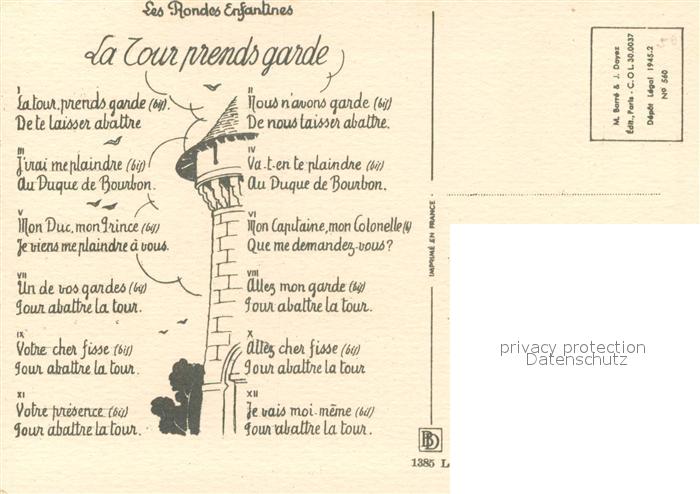 Les Rondes Enfantines
La Tour prends garde
I
La tour, prends garde (bis).
De te laisser abattre
II
Nous n'avons garde (bis)
De nous laisser abattre.
III
J'irai me plaindre (bis)
Au Duque de Bourbon.
IV
Va-t-en te plaindre (bis)
Au Duque de Bourbon.
V
Mon Duc, mon Prince (bis)
Je viens me plaindre à vous.
VI
Mon Capitaine, mon Colonelle (b)
Que me demandez-vous?
VII
Un de vos gardes (bis)
Pour abattre la tour.
VIII
Allez mon garde (bis)
Pour abattre la tour.
IX
Votre cher fisse (bis)
Pour abattre la tour.
X
Allez cher fisse (bis)
Pour abattre la tour
XI
Votre présence (bis)
Pour abattre la tour.
XII
Je vais moi-même (bis)
Pour abattre la tour.
IMPRIMÉ EN FRANCE
BD
1385 L
M. Barré & J. Dayez
Édit., Paris - C.O.L. 30.0037
Dépôt Légal 1945-2
No 560
privacy protection
Datenschutz